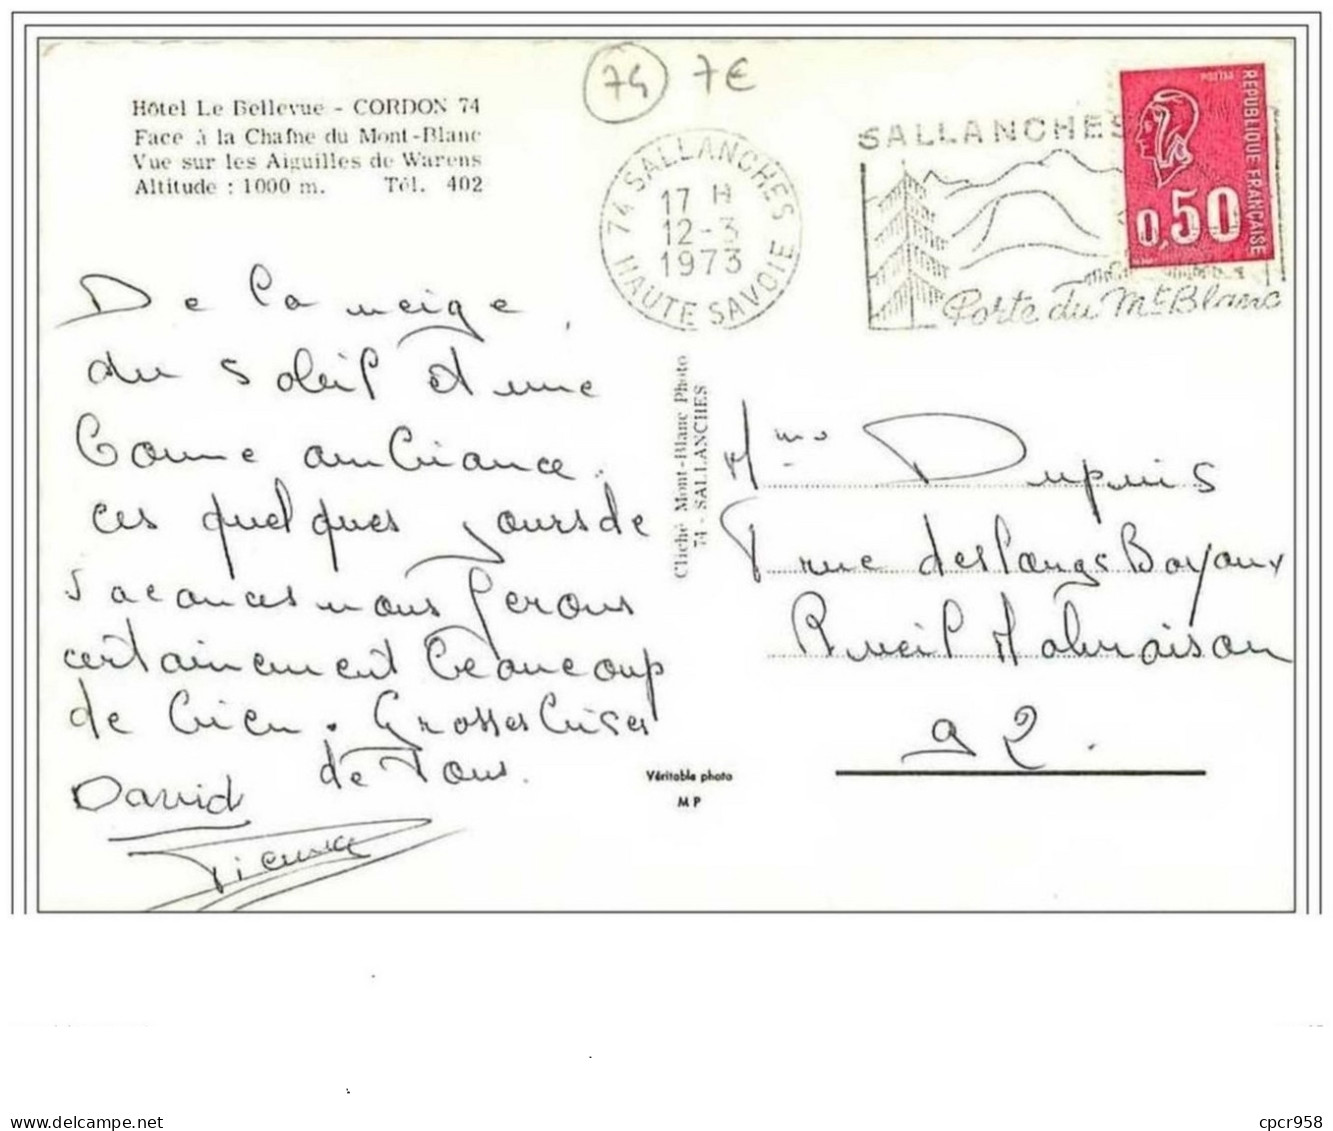 74 7€
Hôtel Le Bellevue - CORDON 74
Face à la Chaîne du Mont-Blanc
Vue sur les Aiguilles de Warens
Altitude : 1000 m. Tél. 402
74 SALLANCHES
17 H
12-3
1973
HAUTE SAVOIE
SALLANCHES
Porte du Mt Blanc
POSTES
REPUBLIQUE FRANÇAISE
0,50
De la neige,
du soleil et une
bonne ambiance.
ces quelques jours de
vacances nous ferons
certainement beaucoup
de bien. Grosses bises
de Tous.
David
Cliché Mont-Blanc Photo
74 - SALLANCHES
Mme Dupuis
7 rue des Longs Boyaux
Rueil Malmaison
92.
Véritable photo
M P
delcampe.net
cpcr958